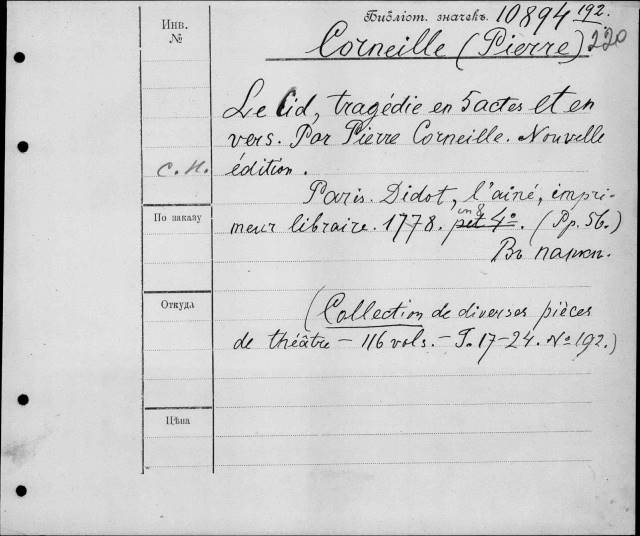 Библіот. значекъ. 10894 192.
220
Инв.
№
Corneille (Pierre)
Le Cid, tragédie en 5 actes et en
vers. Par Pierre Corneille. Nouvelle
с. п.
édition.
Paris. Didot, l'ainé, impri-
По заказу
meur libraire. 1778. pet 4º. (Pp. 56.)
in 8
Въ папкѣ.
Откуда
(Collection de diverses pièces
de théâtre — 116 vols. — T. 17-24. Nº 192.)
Цѣна